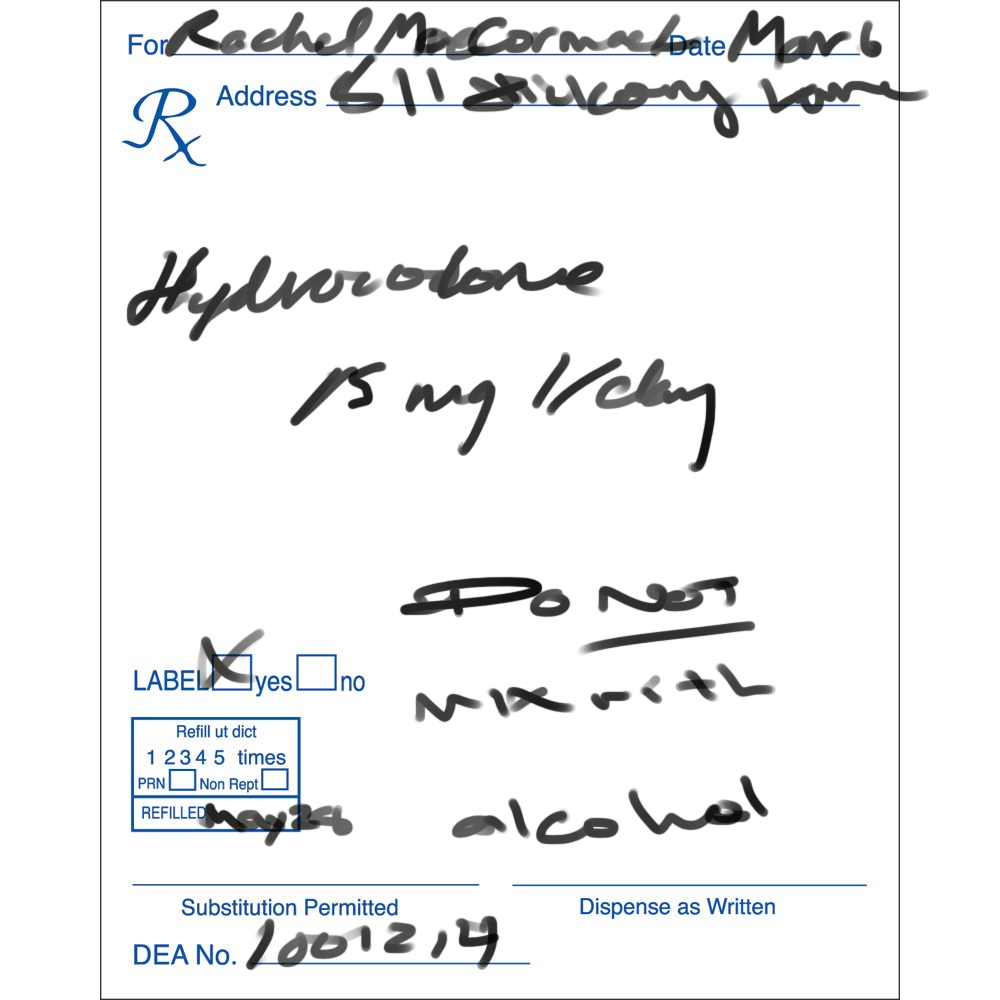 For Rachel MacCormack Date Mar 6
Rx Address 611 Hickory Lane
Hydrocodone
15 mg 1/day
Do NOT
LABEL yes no
mix with
Refill ut dict
1 2 3 4 5 times
PRN Non Rept
REFILLED May 28
alcohol
Substitution Permitted Dispense as Written
DEA No. 1001214